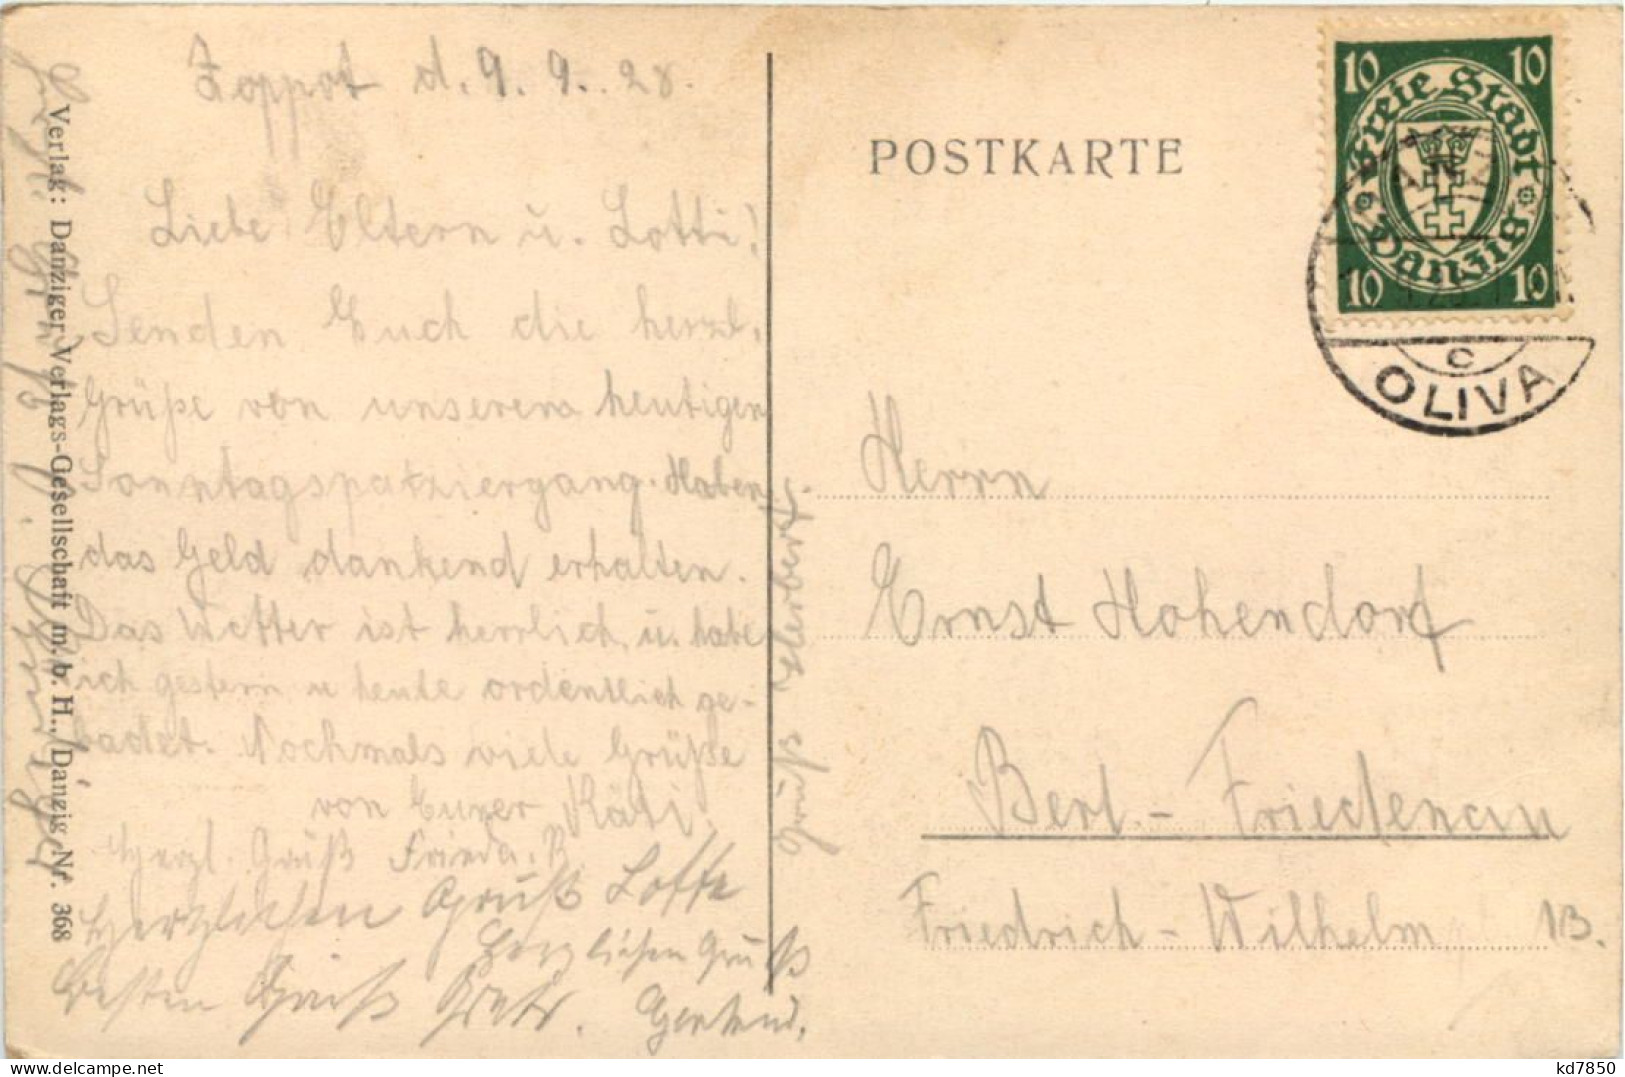 Zoppot d. 9. 9. 28.
Liebe Eltern u. Lotti!
Senden Euch die herzl.
Grüße von unserem heutigen
Sonntagspatziergang. Haben
das Geld dankend erhalten.
Das Wetter ist herrlich, u. habe
ich gestern u heute ordentlich ge-
badet. Nochmals viele Grüße
von Eurer Käti.
Herzl. Gruß Frieda. B.
Herzlichen Gruß Lotte
Herzlichen Gruß
Besten Gruß
Gertrud.
Verlag: Danziger Verlags-Gesellschaft m. b. H., Danzig Nr. 368
POSTKARTE
10 10
Freie Stadt
Danzig
10 10
OLIVA
c
Herrn
Ernst Hohendorf
Berl.-Friedenau
Friedrich-Wilhelm 13.
kd7850